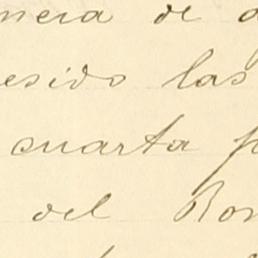 mera de
esido las
cuarta
del Ron